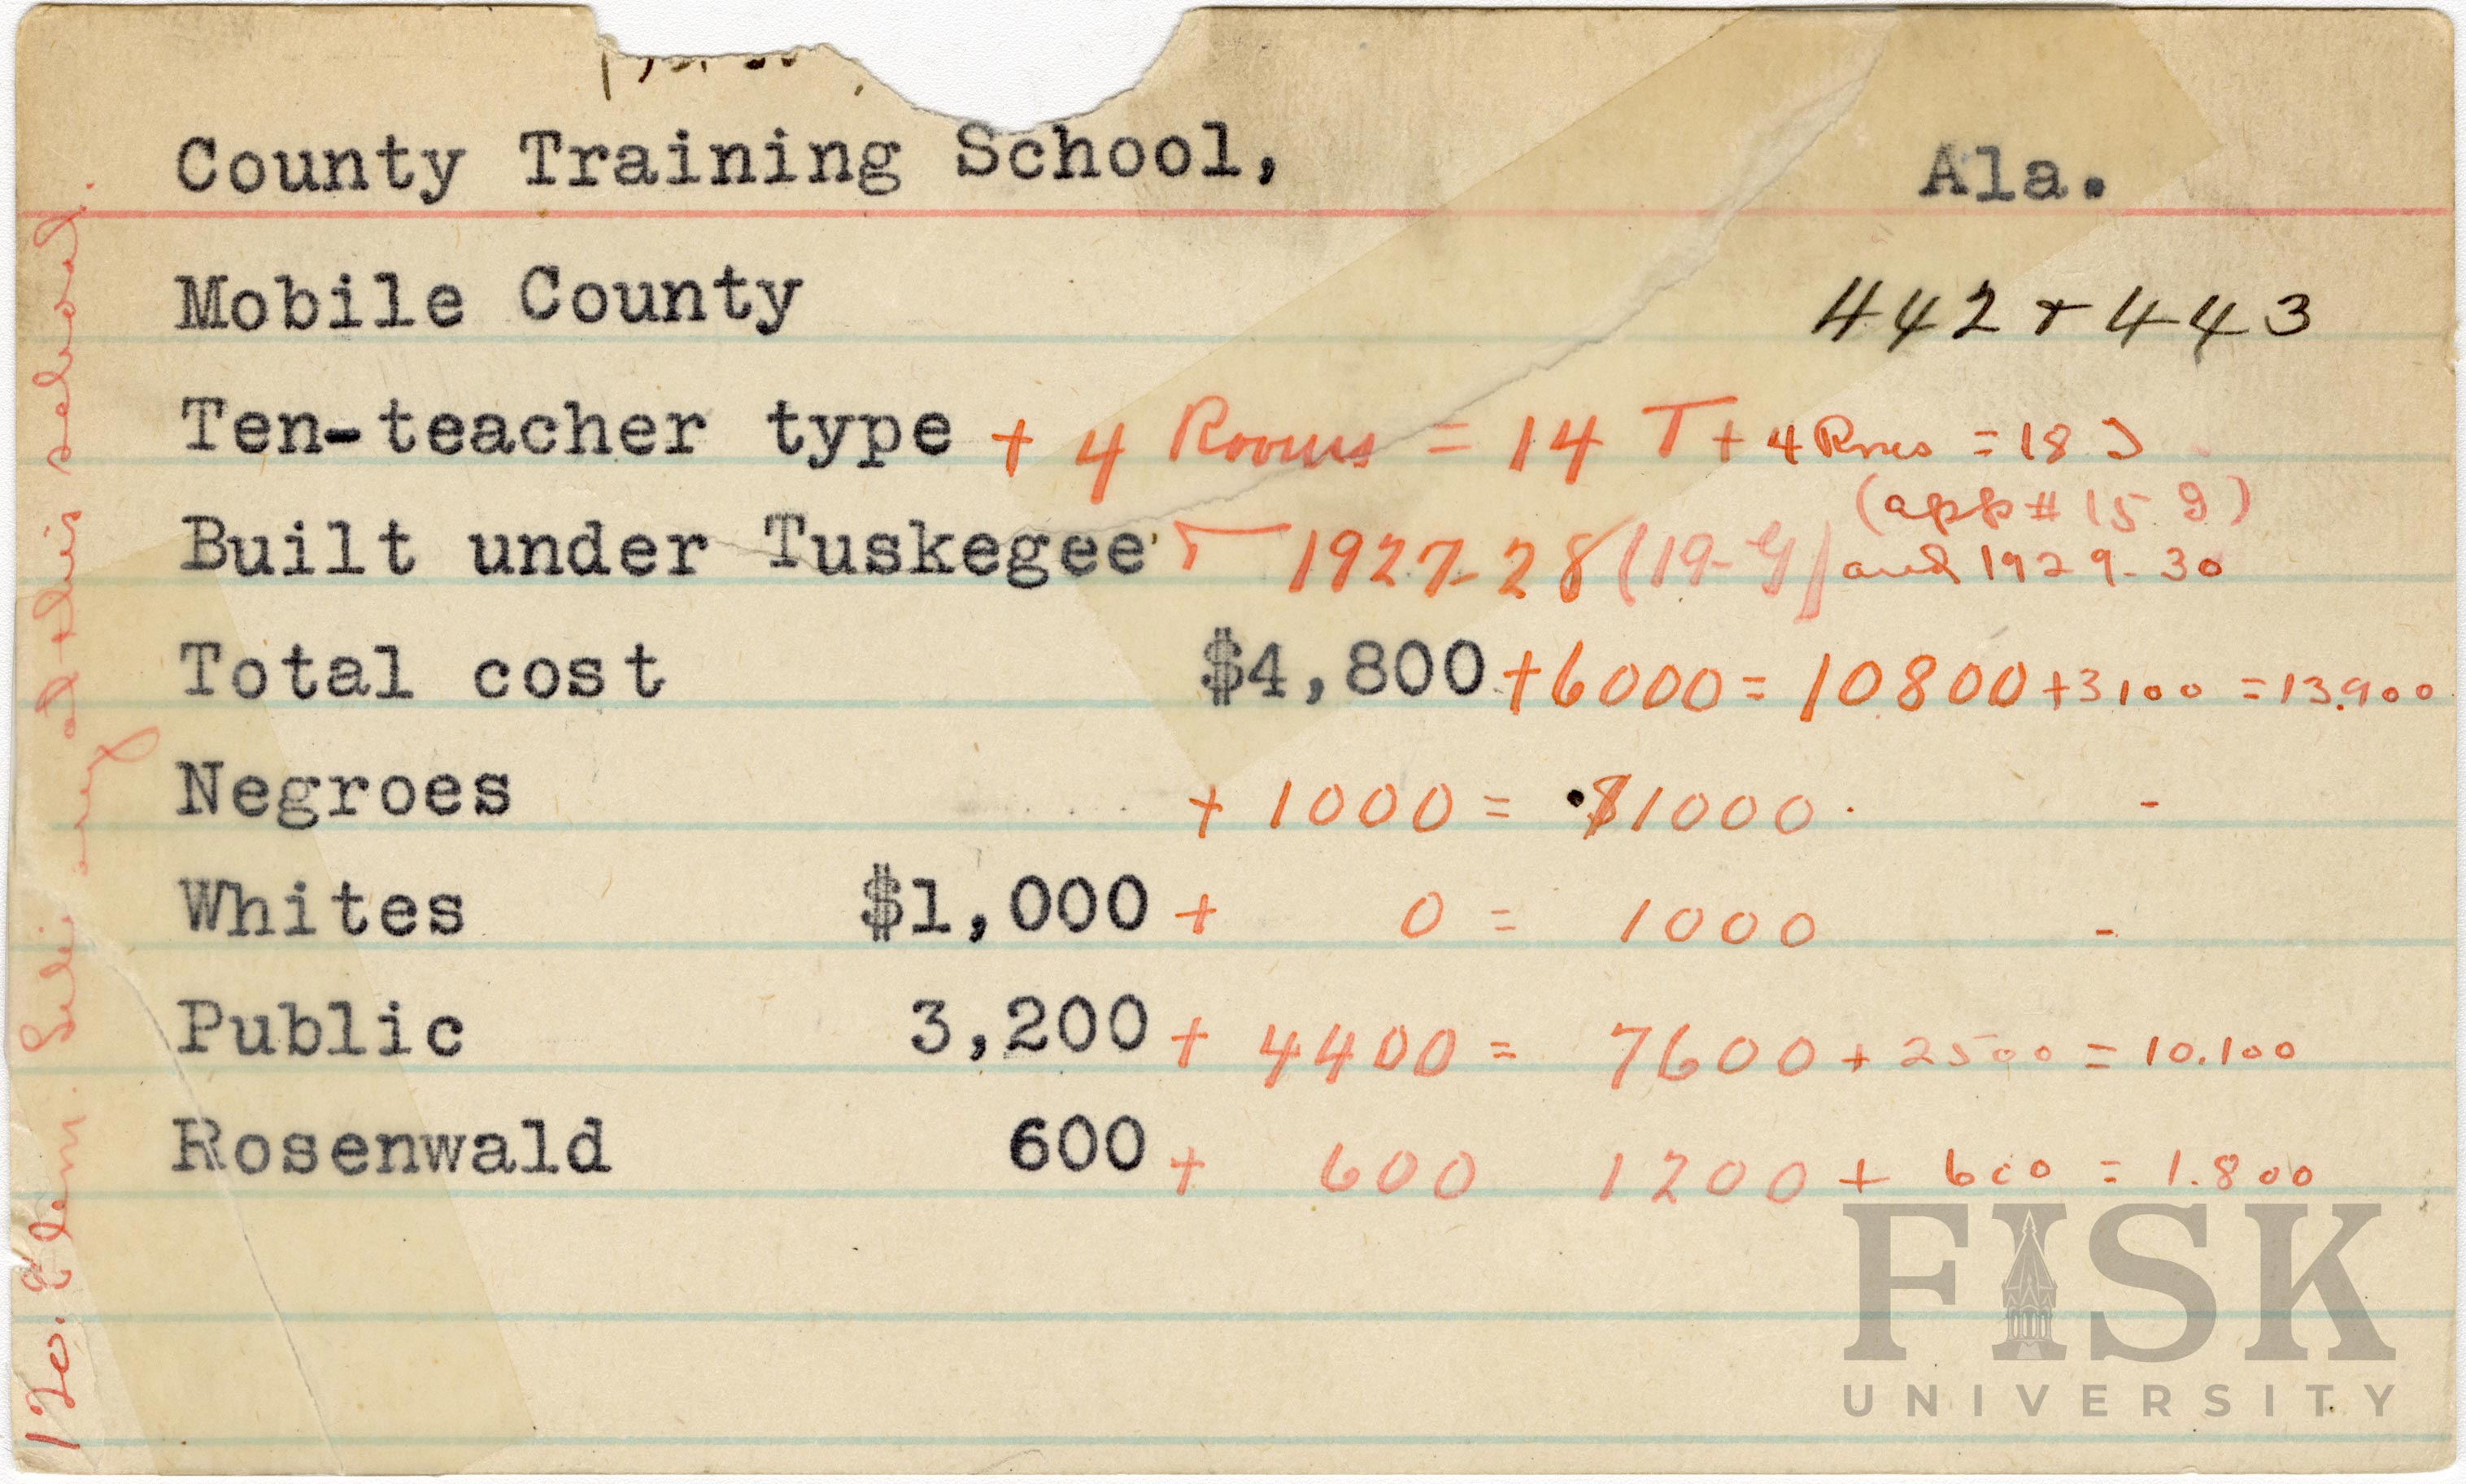 County Training School, Ala.
Mobile County 442 + 443
Ten-teacher type + 4 Rooms = 14 T + 4 Rms = 18 T
(app # 15 9)
Built under Tuskegee + 1927-28 (19-9) and 1929-30
Total cost $4,800 + 6000 = 10800 + 3100 = 13.900
Negroes + 1000 = $1000 -
Whites $1,000 + 0 = 1000 -
Public 3,200 + 4400 = 7600 + 2500 = 10.100
Rosenwald 600 + 600 1200 + 600 = 1.800
120. Elem. at this school.
FISK
UNIVERSITY